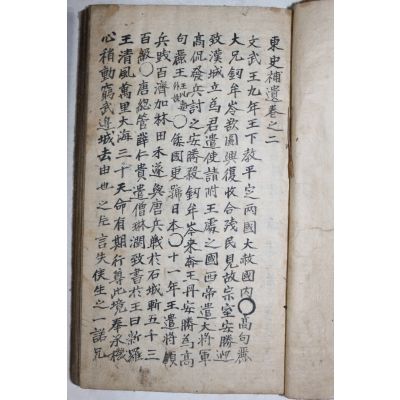 東史補遺卷之二
文武王九年王下敎平定两國大赦國內〇高句麗
大兄釰牟岑欲圖興復收合茂民見故宗室安勝迎
致漢城立爲君遣使請附王處之國西帝遣大將軍
高侃發兵討之安勝殺釰牟岑來奔王丹安勝爲高
句麗王 〇倭國更號日本〇十一年王遣將領
兵踐百濟加林田禾遂與唐兵戰於石城斬五十三
百級〇唐緫管薛仁貴遣僧琳潤致書於王曰新羅
王清風萬里大海三十天命有期行尊此境奉承機
心稍動窮武邊城去由也之片言失侯生之一諾兄